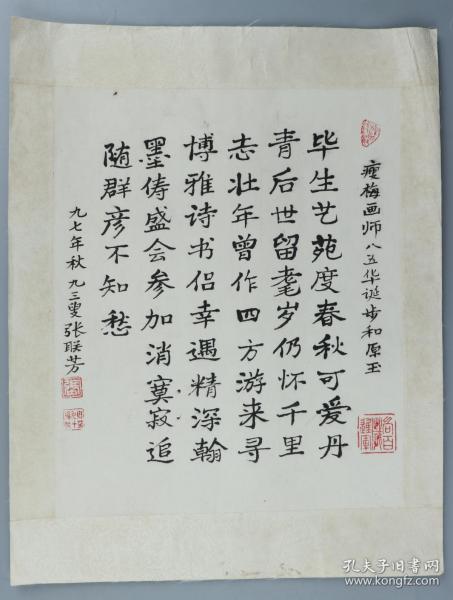 瘦梅画师八五华诞步和原玉
毕生艺苑度春秋可爱丹
青后世留耄岁仍怀千里
志壮年曾作四方游来寻
博雅诗书侣幸遇精深翰
墨俦盛会参加消寞寂追
随群彦不知愁
九七年秋九三叟张联芳
孔夫子旧书网
www.kongfz.com